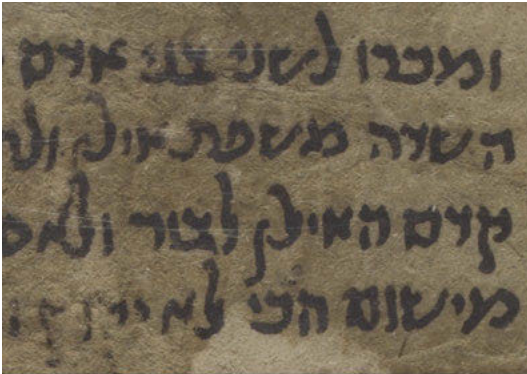 ומכרו לשני בני אדם
השדה משפת אילן ול
קדם האילן לצור ולא
מישום הכי לא